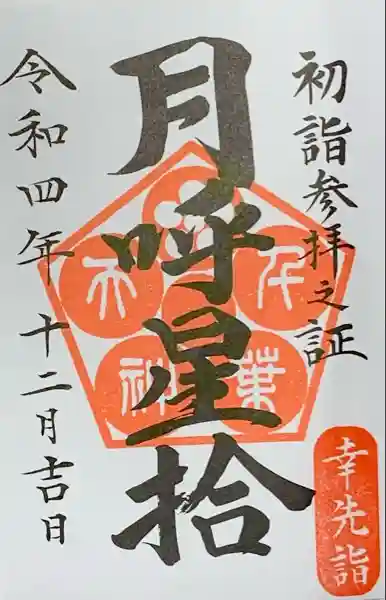 初詣参拝之証
月呼星拾
令和四年十二月吉日
千葉天神
幸先詣